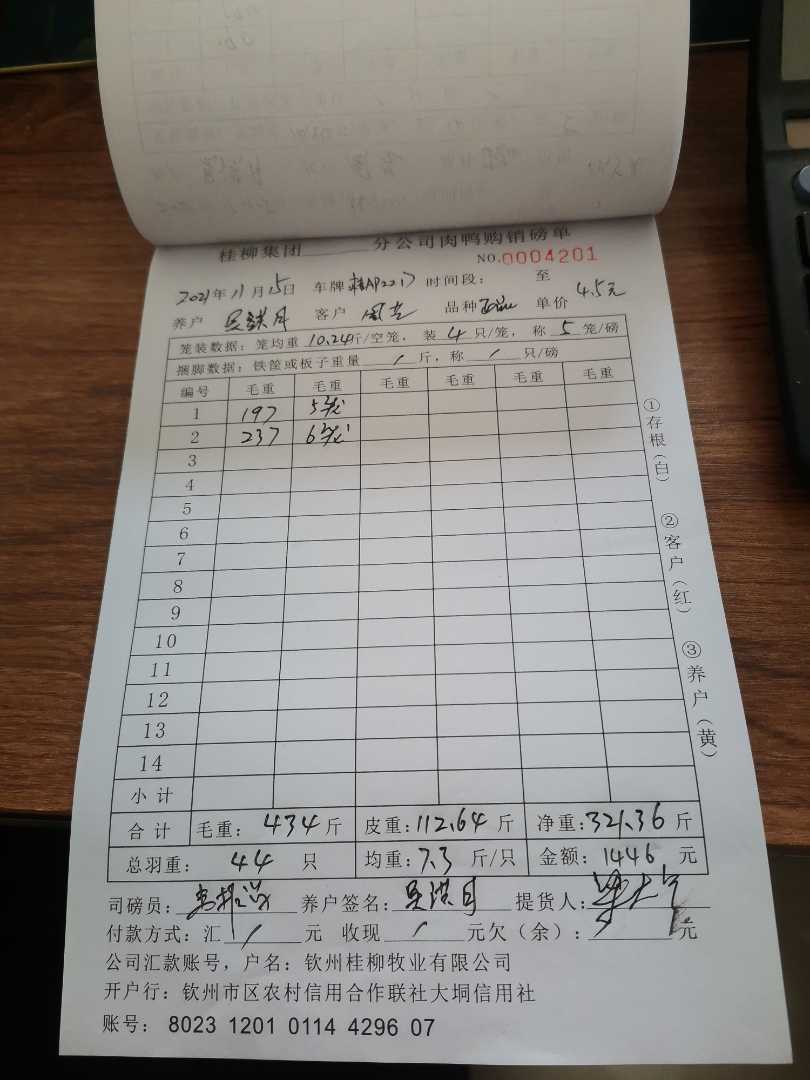 桂柳集团______分公司肉鸭购销磅单
NO.0004201
2021年11月15日 车牌 桂AP2217 时间段： 至
养户 吴洪月 客户 品种 单价 4.5元
笼装数据：笼均重 10.24斤/空笼，装 4 只/笼，称 5 笼/磅
捆脚数据：铁筐或板子重量 / 斤，称 / 只/磅
编号 毛重 毛重 毛重 毛重 毛重 毛重
1 197 5笼
2 237 6笼
3
4
5
6
7
8
9
10
11
12
13
14
小计
合计 毛重：434斤 皮重：112.64斤 净重：321.36斤
总羽重：44 只 均重：7.3 斤/只 金额：1446 元
司磅员： 养户签名：吴洪月 提货人：
付款方式：汇 / 元 收现 / 元欠（余）： / 元
公司汇款账号，户名：钦州桂柳牧业有限公司
开户行：钦州市区农村信用合作联社大垌信用社
账号： 8023 1201 0114 4296 07
①存根（白）
②客户（红）
③养户（黄）